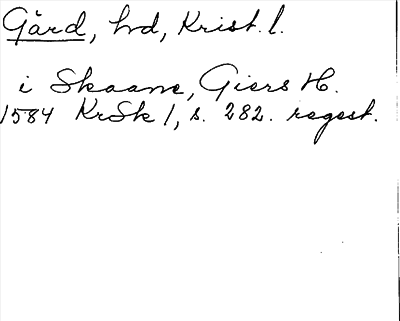 Gärd, hd, Krist. l.
i Skaane, Giers H.
1584 KrSk 1, s. 282. regest.